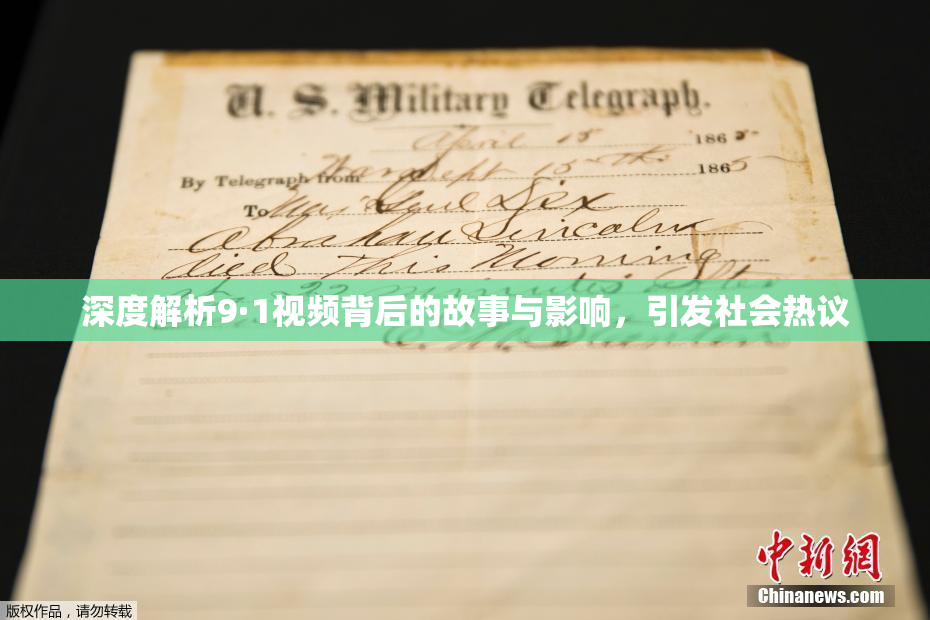 U. S. Military Telegraph.
April 15 1865
By Telegraph from War Dept 15th 1865
To Maj Genl Dix
Abraham Lincoln
died this Morning
at 22 minutes after
深度解析9·1视频背后的故事与影响，引发社会热议
E. M. Stanton
中新网
Chinanews.com
版权作品，请勿转载